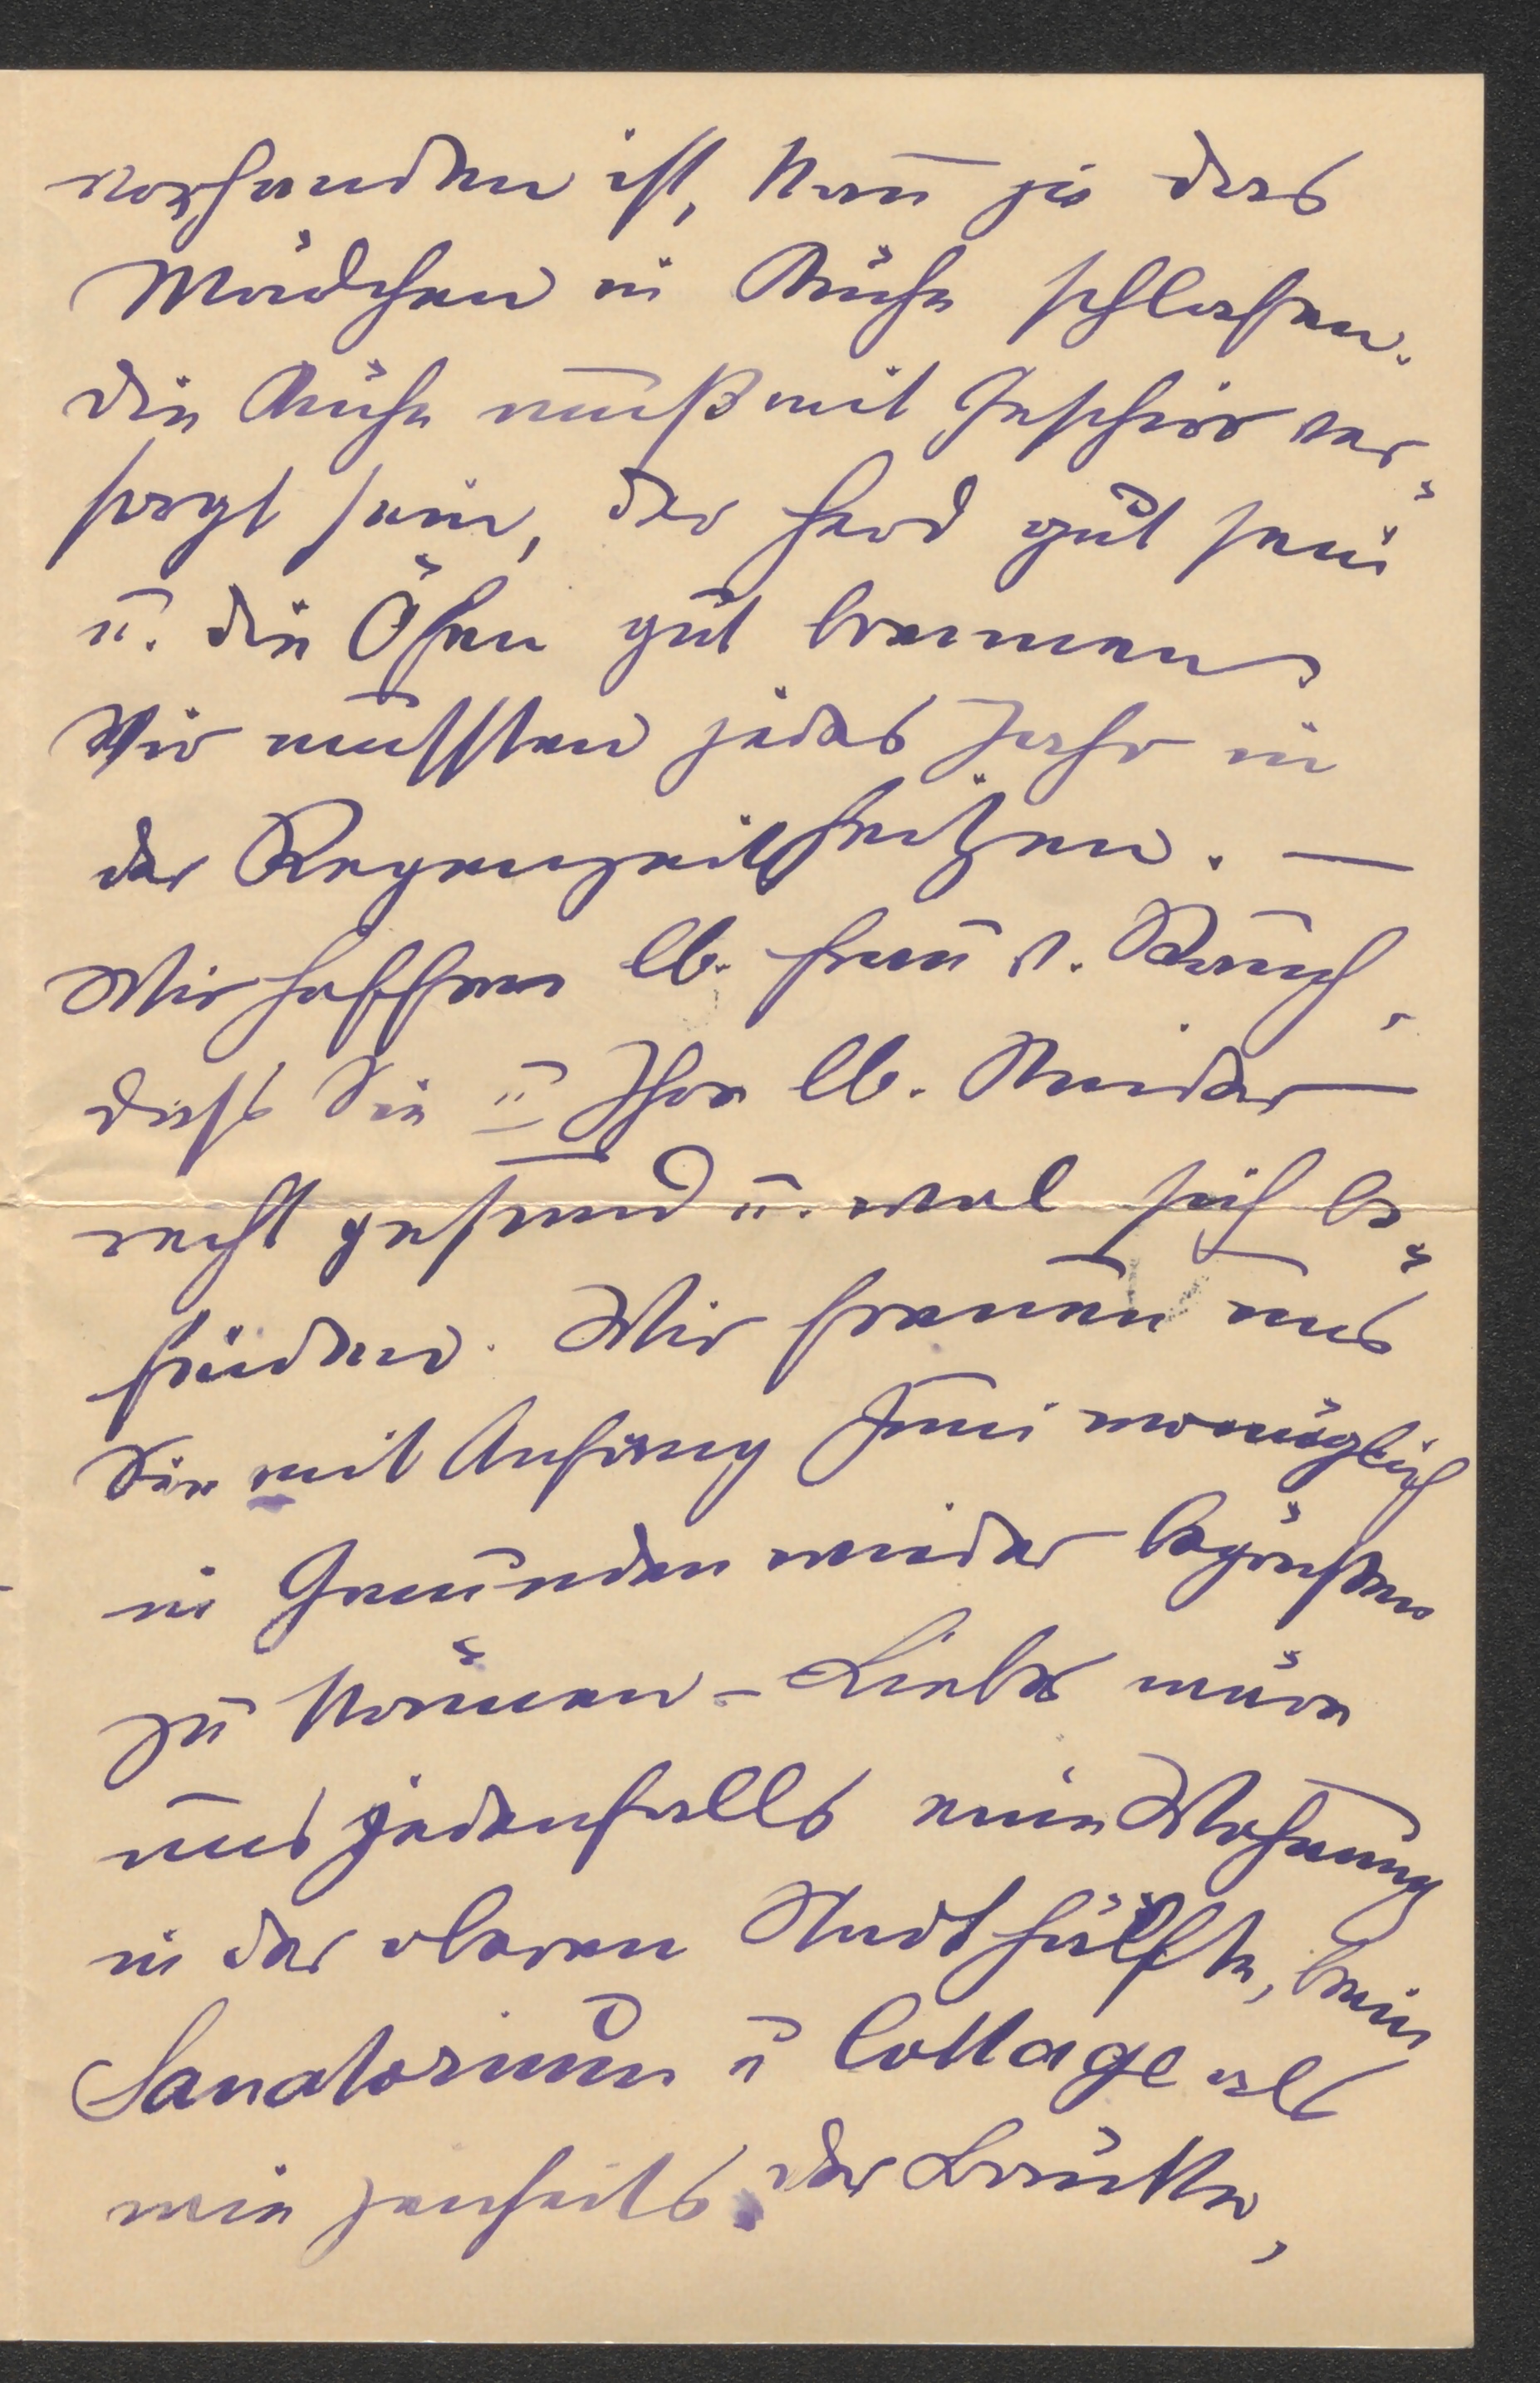 vorhanden ist, kann ja das
Mädchen in Küche schlafen.
Die Küche muß mit Geschirr ver-
sorgt sein, der Herd gut sein
u. die Öfen gut brennen.
Wir mussten jedes Jahr in
der Regenzeit heitzen. —
Wir hoffen lb. Frau v.
dass Sie u Ihre lb. Kinder
recht gesund u. wol sich be-
finden. Wir freuen uns
Sie mit Anfang Juni womöglich
in Gmunden wieder begrüßen
zu können – Liebes wäre
uns jedenfalls eine Wohnung
in der oberen Stadthälfte, beim
Sanatorium u Cottage als
wie jenseits der Brücke,